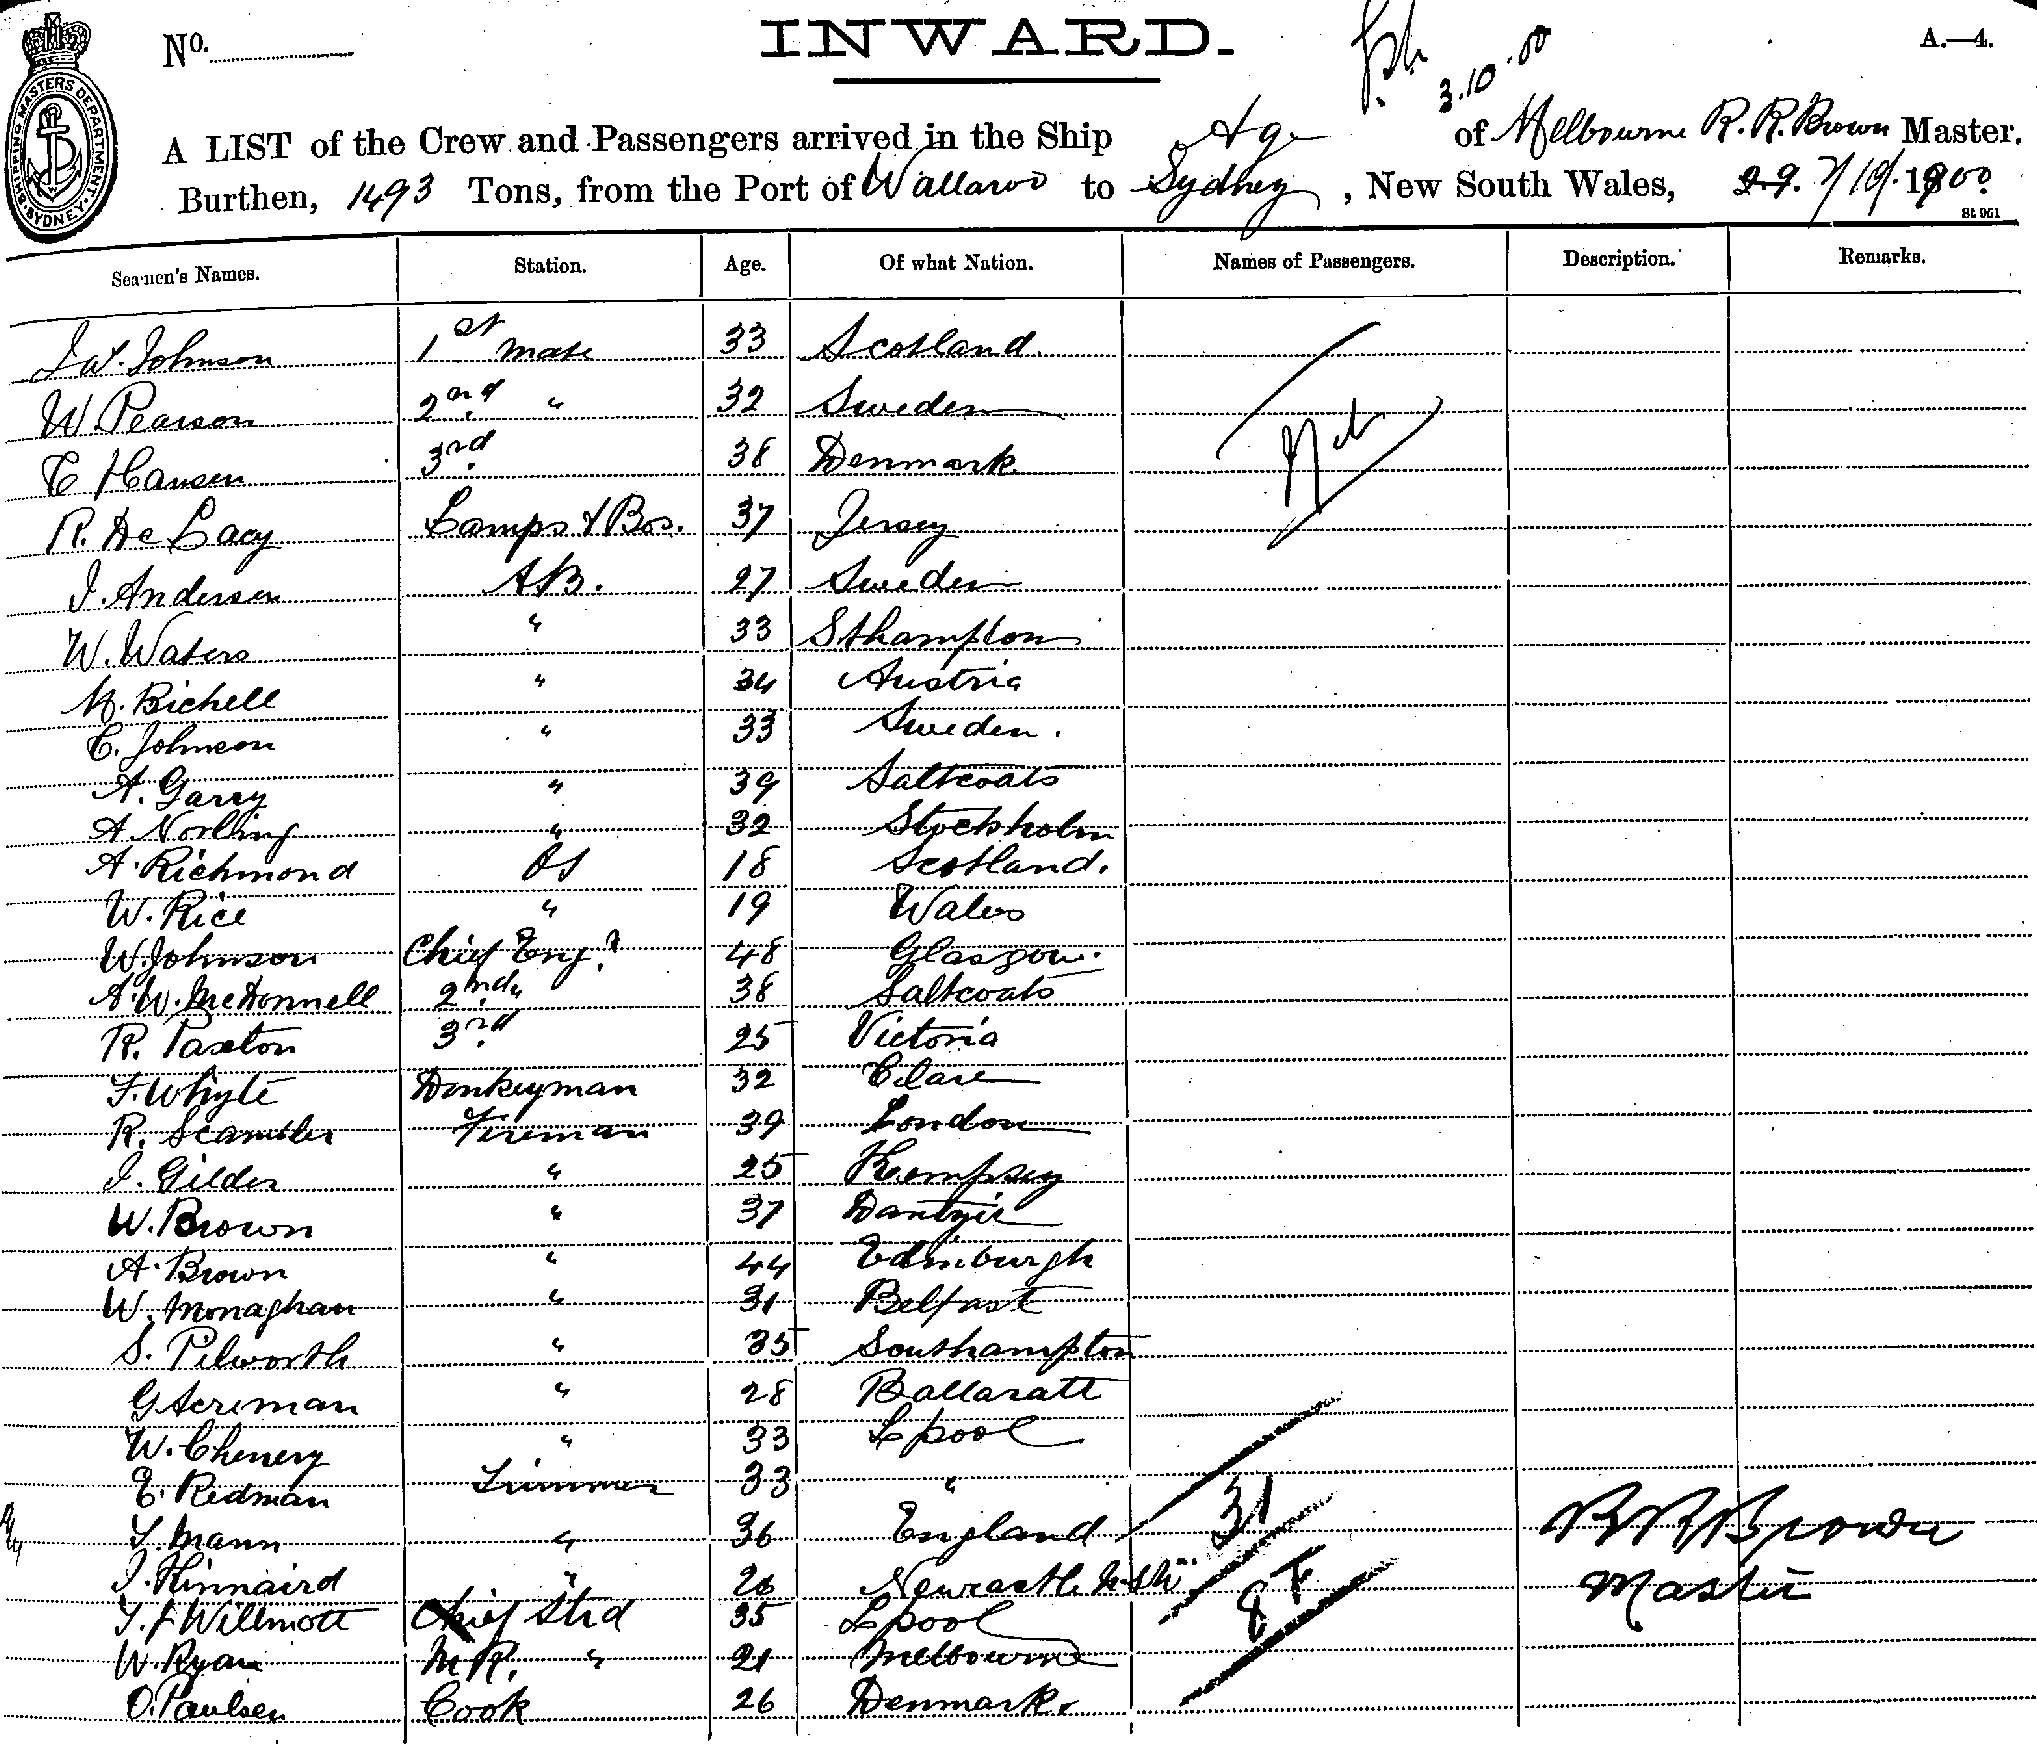 SHIPPING MASTERS DEPARTMENT. SYDNEY.
No.
INWARD.
A.—4.
3.10.00
A LIST of the Crew and Passengers arrived in the Ship Age of Melbourne R. R. Brown Master.
Burthen, 1493 Tons, from the Port of Wallaroo to Sydney, New South Wales, 29. 7/10/1900
St 961
Seamen's Names. Station. Age. Of what Nation. Names of Passengers. Description. Remarks.
Jas. Johnson 1st Mate 33 Scotland.
W. Pearson 2nd " 32 Sweden
C Hansen 3rd 38 Denmark
R. De Lacy Lamps & Bos. 37 Jersey
J. Andersen AB. 27 Sweden
W. Waters " 33 Sthampton
M. Bichell " 34 Austria
C. Johnson " 33 Sweden.
A. Garry " 39 Saltcoats
A Norling " 32 Stockholm
A. Richmond OS 18 Scotland.
W. Rice " 19 Wales
W. Johnson Chief Engr. 48 Glasgow.
A. W. McDonnell 2nd " 38 Saltcoats
R. Paxton 3rd 25 Victoria
F. Whyte Donkeyman 32 Clare
R. Scambler Fireman 39 London
J. Gilder " 25 Kempsey
W. Brown " 37 Dantzic
A. Brown " 44 Edinburgh
W. Monaghan " 31 Belfast
S. Pilworth " 35 Southampton
G Acreman " 28 Ballaratt
W. Chenery " 33 Lpool
E. Redman Trimmer 33 "
T. Mann " 36 England 31
J. Kinnaird " 26 Newcastle
T. J Willmott Chief Strd 35 Lpool
W. Ryan M R. " 21 Melbourne
O. Paulsen Cook 26 Denmark.
R R Brown
Master